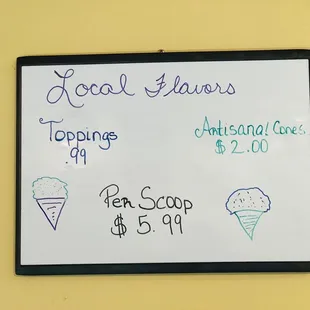 Local Flavors
Toppings
.99
Artisanal Cones
$ 2.00
Per Scoop
$ 5.99